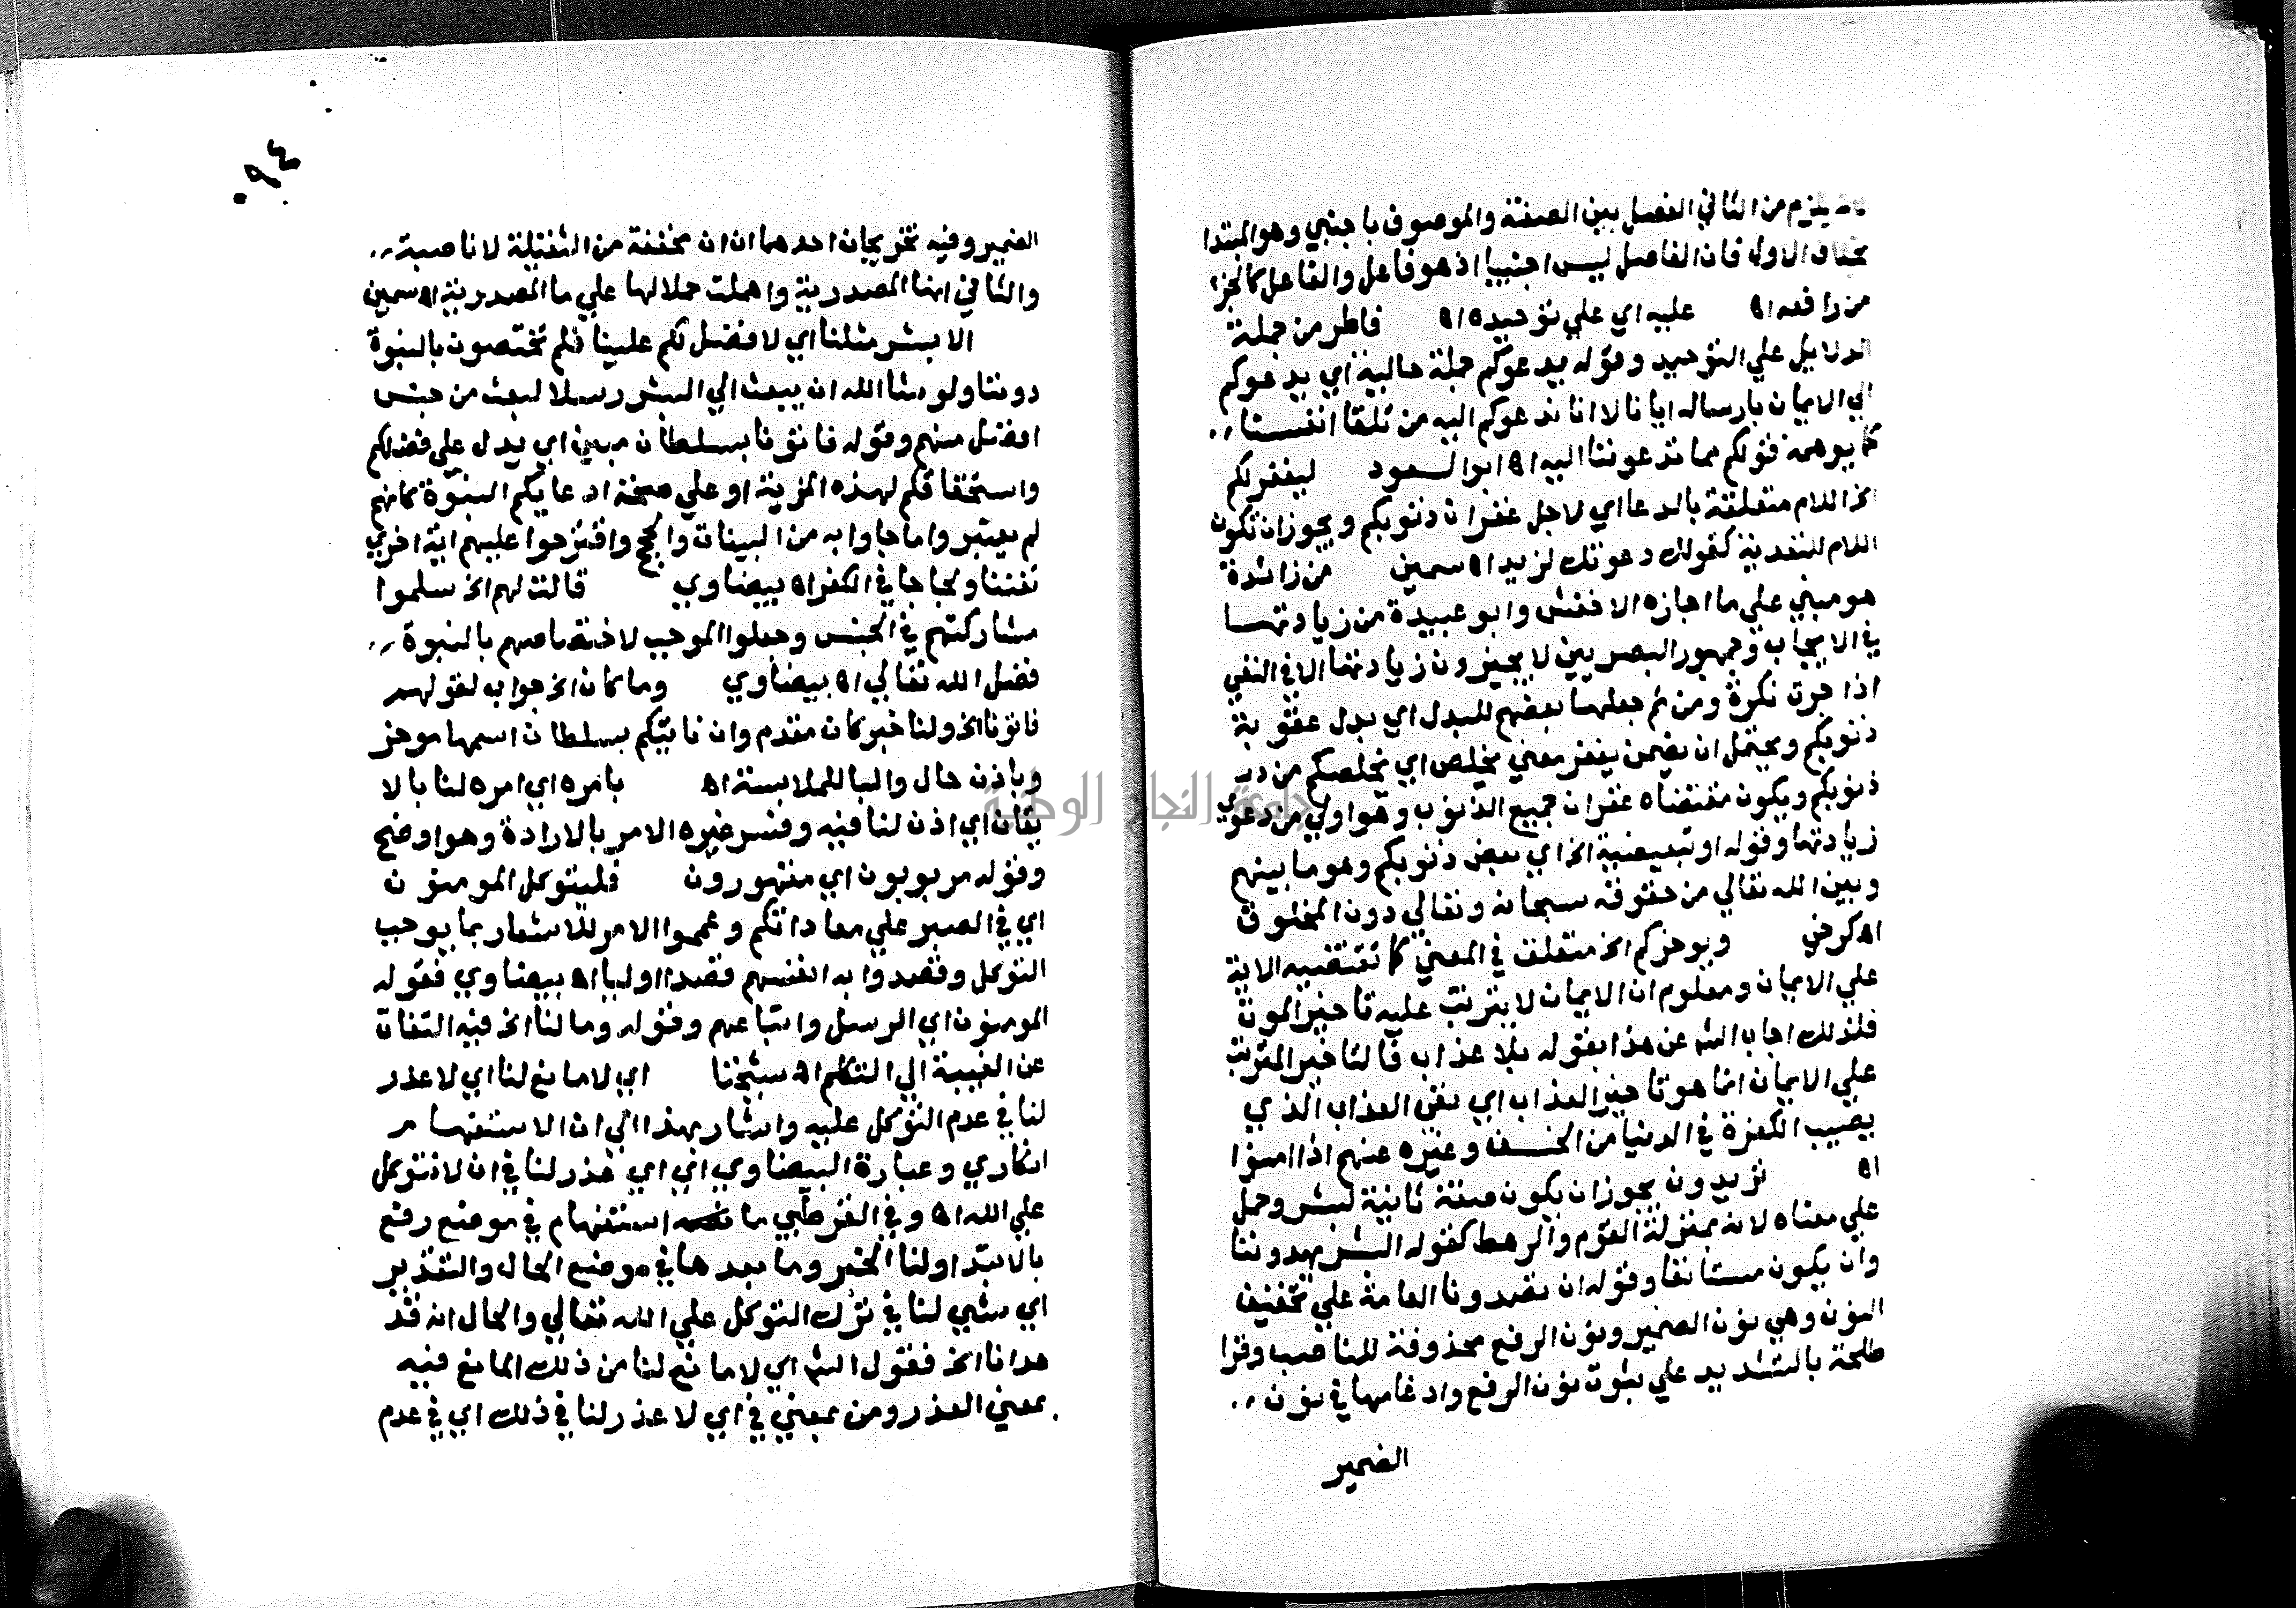 يلزم من الثاني الفصل بين الصفة والموصوف باجنبي وهو المبتدا
بخلاف الاول فان الفاصل ليس اجنبيا اذ هو فاعل والفاعل كالجزء
من رافعه اه عليه اي علي توحيده اه فاطر من جملة
الدلايل علي التوحيد وقوله يدعوكم جملة حالية اي يدعوكم
الي الايمان بارساله ايانا لا انا ندعوكم اليه من تلقا انفسنا
كما يوهمه قولكم مما تدعوننا اليه اه ابو السعود ليغفر لكم
الخ اللام متعلقة بالدعا اي لاجل غفران ذنوبكم ويجوز ان تكون
اللام للتعدية كقولك دعوتك لزيد اه سمين من زائدة
هو مبني علي ما اجازه الاخفش وابو عبيدة من زيادتها
في الايجاب وجمهور البصريين لا يجيزون زيادتها الا في النفي
اذا جرت نكرة ومن ثم جعلها بعضهم للبدل اي بدل عقوبة
ذنوبكم ويحتمل ان يضمن يغفر معني يخلص اي يخلصكم من
ذنوبكم ويكون مقتضاه غفران جميع الذنوب وهو اولي من دعوي
زيادتها وقوله او تبعيضية الخ اي بعض ذنوبكم وهو ما بينهم
وبين الله تعالي من حقوقه سبحانه وتعالي دون المخلوق
اه كرخي ويوخركم الخ متعلق في المعني كما تقتضيه الاية
علي الايمان ومعلوم ان الايمان لا يترتب عليه تاخير الموت
فلذلك اجاب الش عن هذا بقوله بلا عذاب فالتاخير المترتب
علي الايمان انما هو تاخير العذاب اي نفي العذاب الذي
يصيب الكفرة في الدنيا من الخسف وغيره عنهم اذا امنوا
اه تريدون يجوز ان يكون صفة ثانية لبشر وحمل
علي معناه لانه بمنزلة القوم والرهط كقوله البشر يهدوننا
وان يكون مستانفا وقوله ان تصدونا العامة علي تخفيف
النون وهي نون الضمير ونون الرفع محذوفة للناصب وقرا
طلحة بالتشديد علي ثبوت نون الرفع وادغامها في نون
الضمير
٩٤
الضمير وفيه تخريجان احدهما ان ان مخففة من الثقيلة لا ناصبة
والثاني انها المصدرية واهملت حملا لها علي ما المصدرية اه سمين
الا بشر مثلنا اي لا فضل لكم علينا فلم تختصون بالنبوة
دوننا ولو شا الله ان يبعث الي البشر رسلا لبعث من جنس
افضل منهم وقوله فاتونا بسلطان مبين اي يدل علي فضلكم
واستحقاقكم لهذه المزية او علي صحة ادعايكم النبوة كانهم
لم يعتبروا ما جاوا به من البينات والحجج واقترحوا عليهم اية اخري
تعنتا ولجاجا في الكفر اه بيضاوي قالت لهم الخ سلموا
مشاركتهم في الجنس وجعلوا الموجب لاختصاصهم بالنبوة
فضل الله تعالي اه بيضاوي وما كان الخ جواب لقولهم
فاتونا الخ ولنا خبر كان مقدم وان ناتيكم بسلطان اسمها موخر
وباذن حال والبا للملابسة اه بامره اي امره لنا بالا
تيان اي اذن لنا فيه وفسر غيره الامر بالارادة وهو اوضح
وقوله مربوبون اي مقهورون فليتوكل المومنون
اي في الصبر علي معاداتكم وعمموا الامر للاشعار بما يوجب
التوكل وقصدوا به انفسهم قصدا اوليا اه بيضاوي فقوله
المومنون اي الرسل واتباعهم وقوله وما لنا الخ فيه التفات
عن الغيبة الي التكلم اه شيخنا اي لا مانع لنا اي لا عذر
لنا في عدم التوكل عليه واشار بهذا الي ان الاستفهام
انكاري وعبارة البيضاوي اي اي عذر لنا في ان لا نتوكل
علي الله اه وفي القرطبي ما استفهام في موضع رفع
بالابتدا ولنا الخبر وما بعدها في موضع الحال والتقدير
اي شي لنا في ترك التوكل علي الله تعالي والحال انه قد
هدانا الخ فقول الش اي لا مانع لنا من ذلك المانع فيه
بمعني العذر ومن بمعني في اي لا عذر لنا في ذلك اي في عدم
جامعة النجاح الوطنية